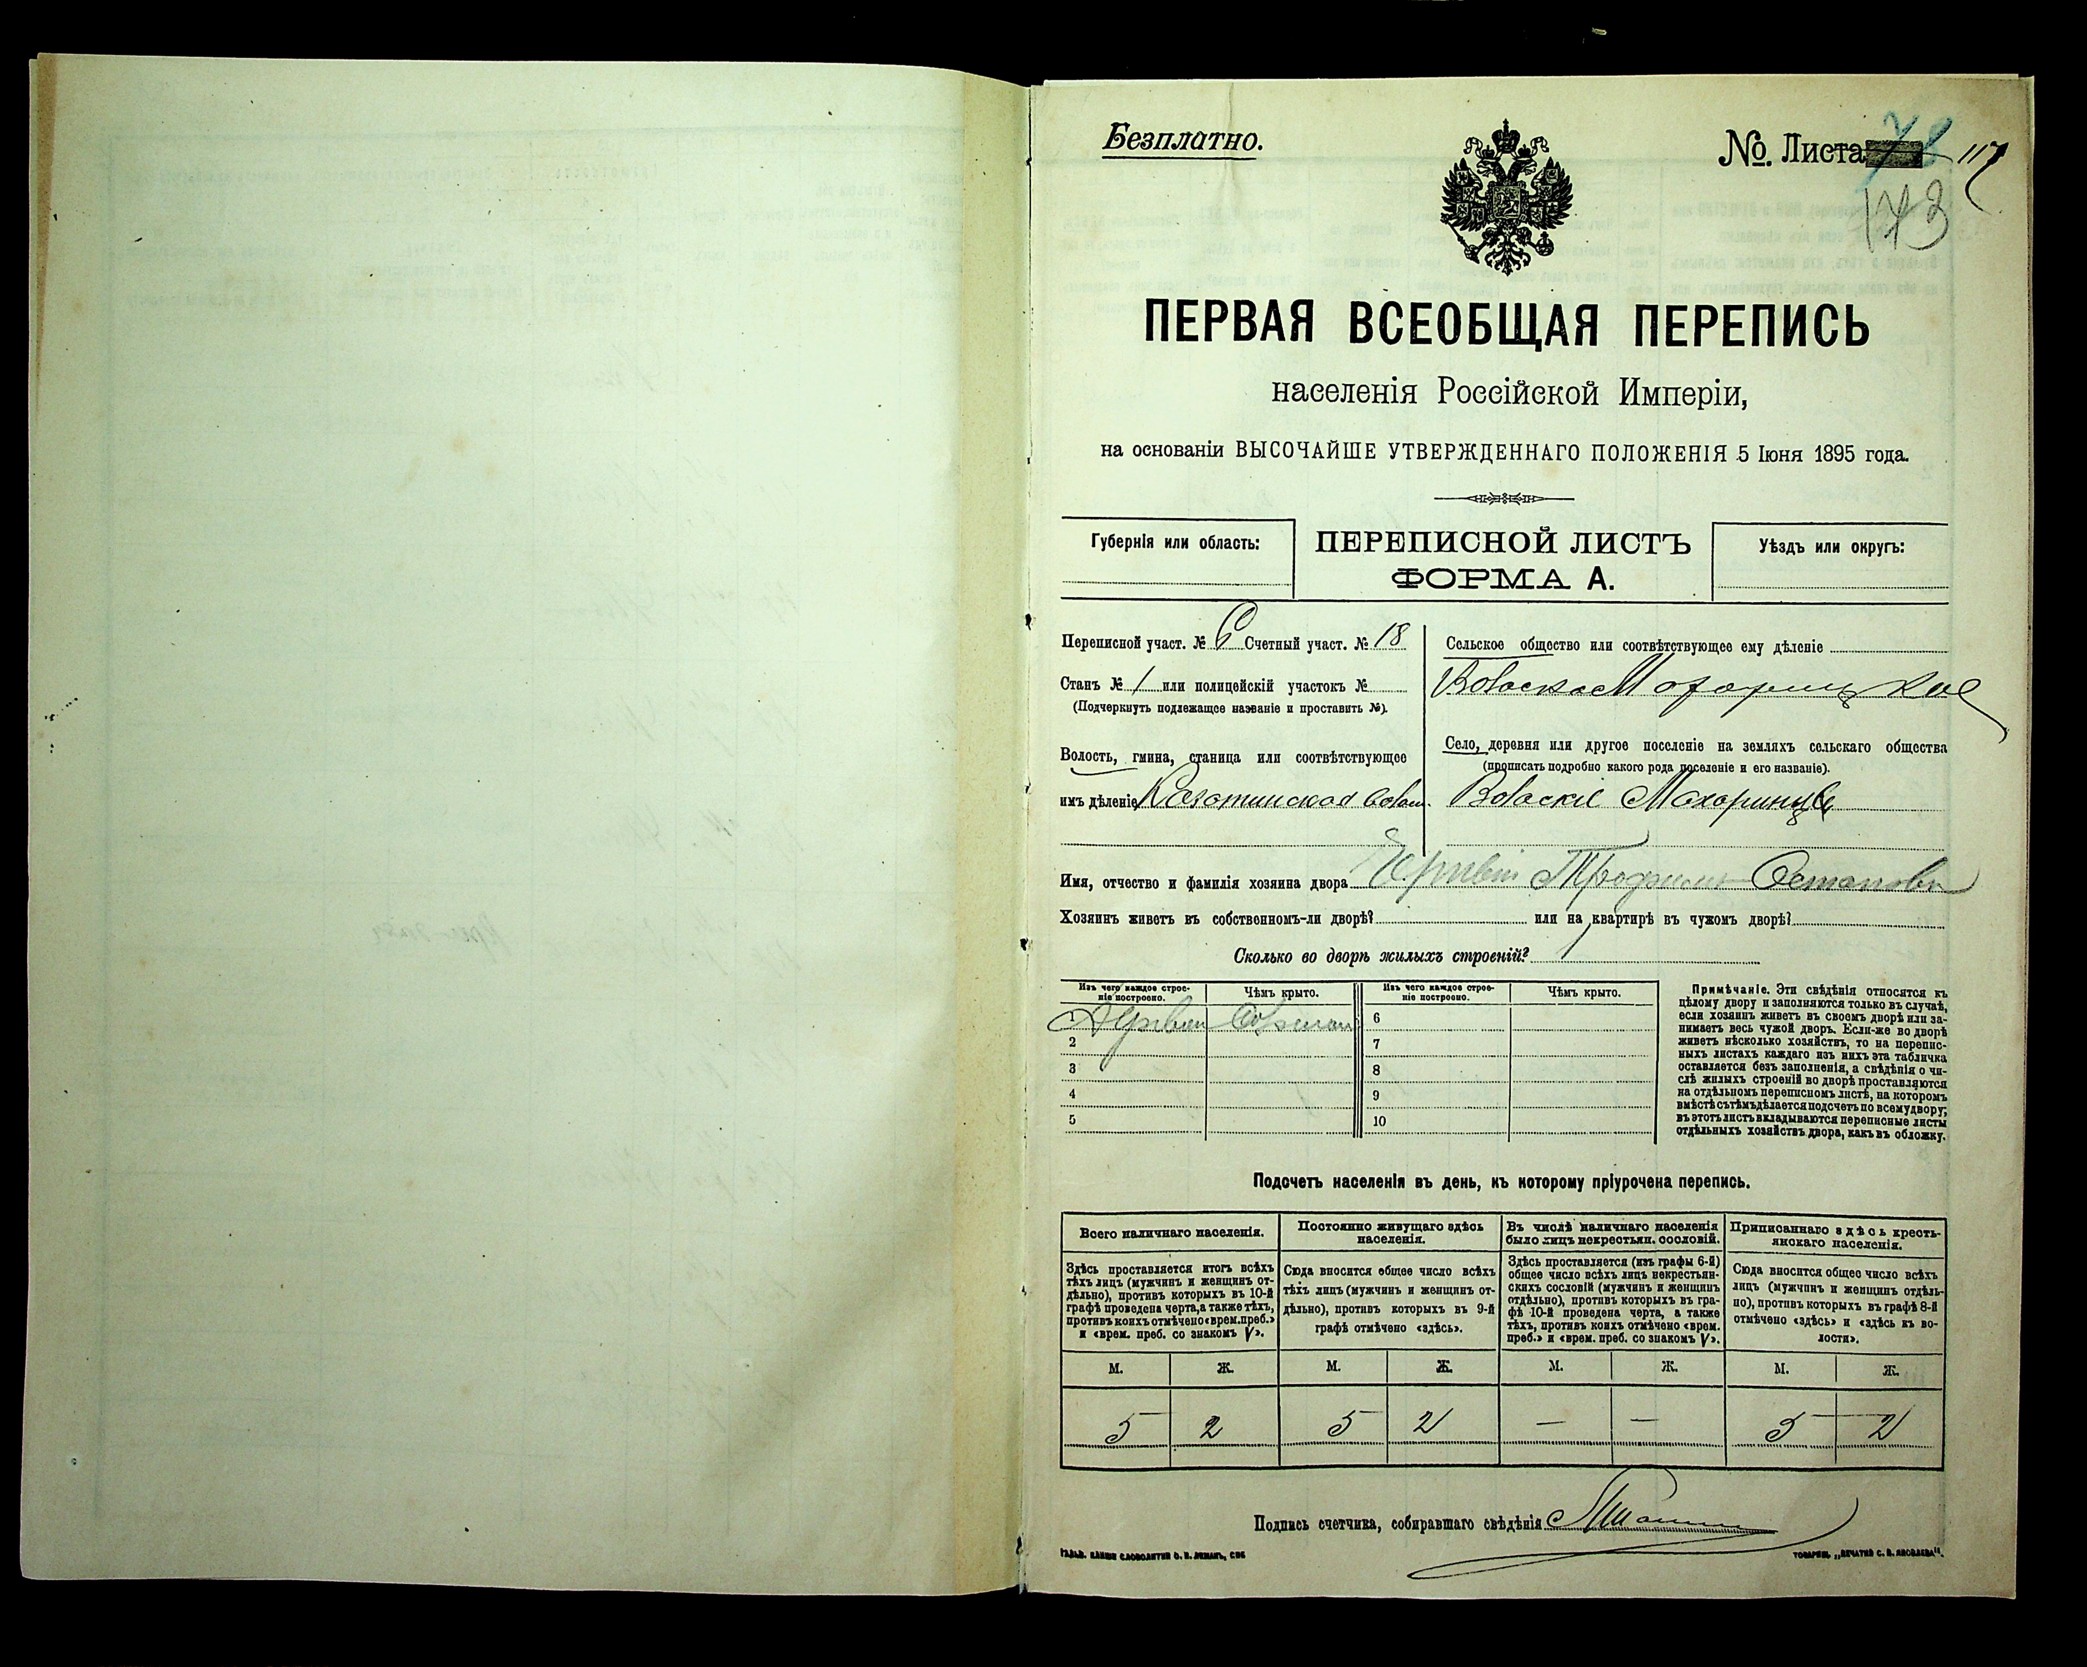 Безплатно.
№. Листа 117
173
ПЕРВАЯ ВСЕОБЩАЯ ПЕРЕПИСЬ
населенія Россійской Имперіи,
на основаніи ВЫСОЧАЙШЕ УТВЕРЖДЕННАГО ПОЛОЖЕНІЯ 5 Іюня 1895 года.
Губернія или область:
ПЕРЕПИСНОЙ ЛИСТЪ
ФОРМА А.
Уѣздъ или округъ:
Переписной участ. № 6 Счетный участ. № 18
Станъ № 1 или полицейскій участокъ №
(Подчеркнуть подлежащее названіе и проставить №).
Волость, гмина, станица или соотвѣтствующее
имъ дѣленіе Казатинская волост.
Сельское общество или соотвѣтствующее ему дѣленіе
Село, деревня или другое поселеніе на земляхъ сельскаго общества
(прописать подробно какого рода поселеніе и его названіе).
Воласкіе Махаринцы
Имя, отчество и фамилія хозяина двора Трофим
Хозяинъ живетъ въ собственномъ-ли дворѣ? или на квартирѣ въ чужомъ дворѣ?
Сколько во дворѣ жилыхъ строеній? 1
Изъ чего каждое строе-
ніе построено.
Чѣмъ крыто.
Изъ чего каждое строе-
ніе построено.
Чѣмъ крыто.
1 6
2 7
3 8
4 9
5 10
Примѣчаніе. Эти свѣдѣнія относятся къ
цѣлому двору и заполняются только въ случаѣ,
если хозяинъ живетъ въ своемъ дворѣ или за-
нимаетъ весь чужой дворъ. Если-же во дворѣ
живетъ нѣсколько хозяйствъ, то на перепис-
ныхъ листахъ каждаго изъ нихъ эта табличка
оставляется безъ заполненія, а свѣдѣнія о чи-
слѣ жилыхъ строеній во дворѣ проставляются
на отдѣльномъ переписномъ листѣ, на которомъ
вмѣстѣ съ тѣмъ дѣлается подсчетъ по всему двору;
въ этотъ листъ вкладываются переписные листы
отдѣльныхъ хозяйствъ двора, какъ въ обложку.
Подсчетъ населенія въ день, къ которому пріурочена перепись.
Всего наличнаго населенія.
Здѣсь проставляется итогъ всѣхъ
тѣхъ лицъ (мужчинъ и женщинъ от-
дѣльно), противъ которыхъ въ 10-й
графѣ проведена черта, а также тѣхъ,
противъ коихъ отмѣчено «врем. преб.»
и «врем. преб. со знакомъ V».
Постоянно живущаго здѣсь
населенія.
Сюда вносится общее число всѣхъ
тѣхъ лицъ (мужчинъ и женщинъ от-
дѣльно), противъ которыхъ въ 9-й
графѣ отмѣчено «здѣсь».
Въ числѣ наличнаго населенія
было лицъ некрестьян. сословій.
Здѣсь проставляется (изъ графы 6-й)
общее число всѣхъ лицъ некрестьян-
скихъ сословій (мужчинъ и женщинъ
отдѣльно), противъ которыхъ въ гра-
фѣ 10-й проведена черта, а также
тѣхъ, противъ коихъ отмѣчено «врем.
преб.» и «врем. преб. со знакомъ V».
Приписаннаго здѣсь кресть-
янскаго населенія.
Сюда вносится общее число всѣхъ
лицъ (мужчинъ и женщинъ отдѣль-
но), противъ которыхъ въ графѣ 8-й
отмѣчено «здѣсь» и «здѣсь къ во-
лости».
М. Ж. М. Ж. М. Ж. М. Ж.
5 2 5 2 — — 5 2
Подпись счетчика, собиравшаго свѣдѣнія
ГАЛЬВ. КЛИШЕ СЛОВОЛИТНИ О. И. ЛЕМАНЪ, СПБ
ТОВАРИЩ. „ПЕЧАТНЯ С. П. ЯКОВЛЕВА".